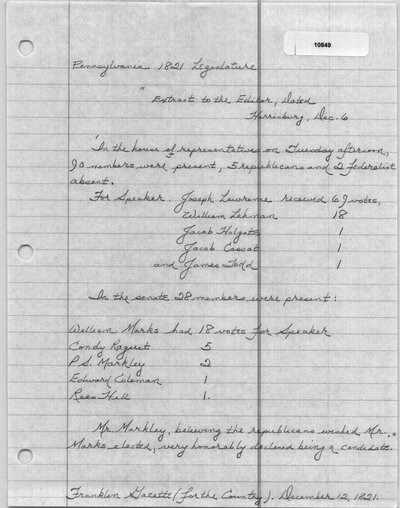 10849
Pennsylvania 1821 Legislature
" Extract to the Editor, Dated
Harrisburg, Dec. 6
'In the house of representatives on Tuesday afternoon,
90 members were present, 5 republicans and 2 Federalist
absent.
For Speaker. Joseph Lawrence received 69 votes,
William Lehman 18
Jacob Holgate 1
Jacob Cassat 1
and James Todd 1
In the senate 28 members were present:
William Marks had 18 votes for Speaker
Condy Raguet 5
P.S. Markley 2
Edward Coleman 1
Rees Hill 1.
Mr. Markley, believing the republicans wished Mr.
Marks elected, very honorably declined being a candidate."
Franklin Gazette (for the Country). December 12, 1821.